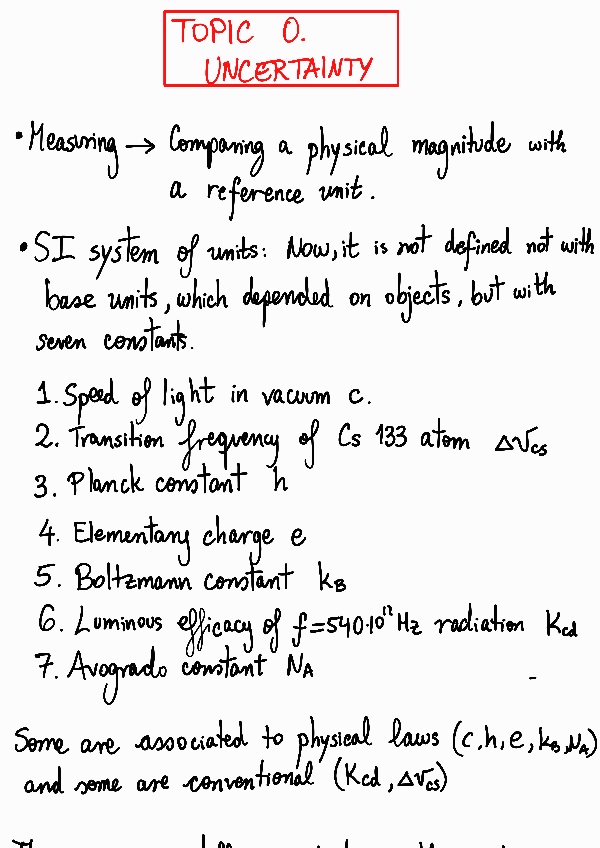 TOPIC 0.
UNCERTAINTY
• Measuring → Comparing a physical magnitude with
a reference unit.
• SI system of units: Now, it is not defined not with
base units, which depended on objects, but with
seven constants.
1. Speed of light in vacuum c.
2. Transition frequency of Cs 133 atom Δν_cs
3. Planck constant h
4. Elementary charge e
5. Boltzmann constant k_B
6. Luminous efficacy of f=540·10¹² Hz radiation K_cd
7. Avogrado constant N_A
Some are associated to physical laws (c, h, e, k_B, N_A)
and some are conventional (K_cd, Δν_cs)